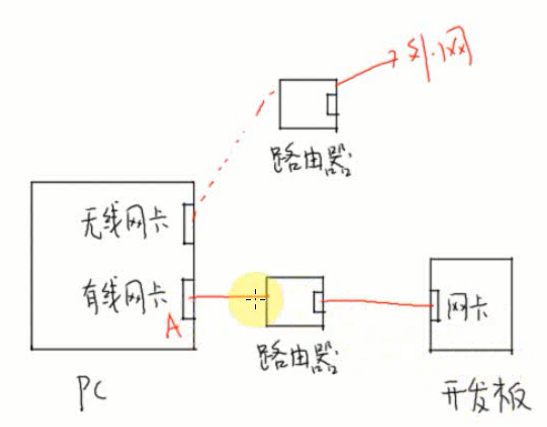 外网
路由器
无线网卡
有线网卡
A
网卡
路由器
PC
开发板